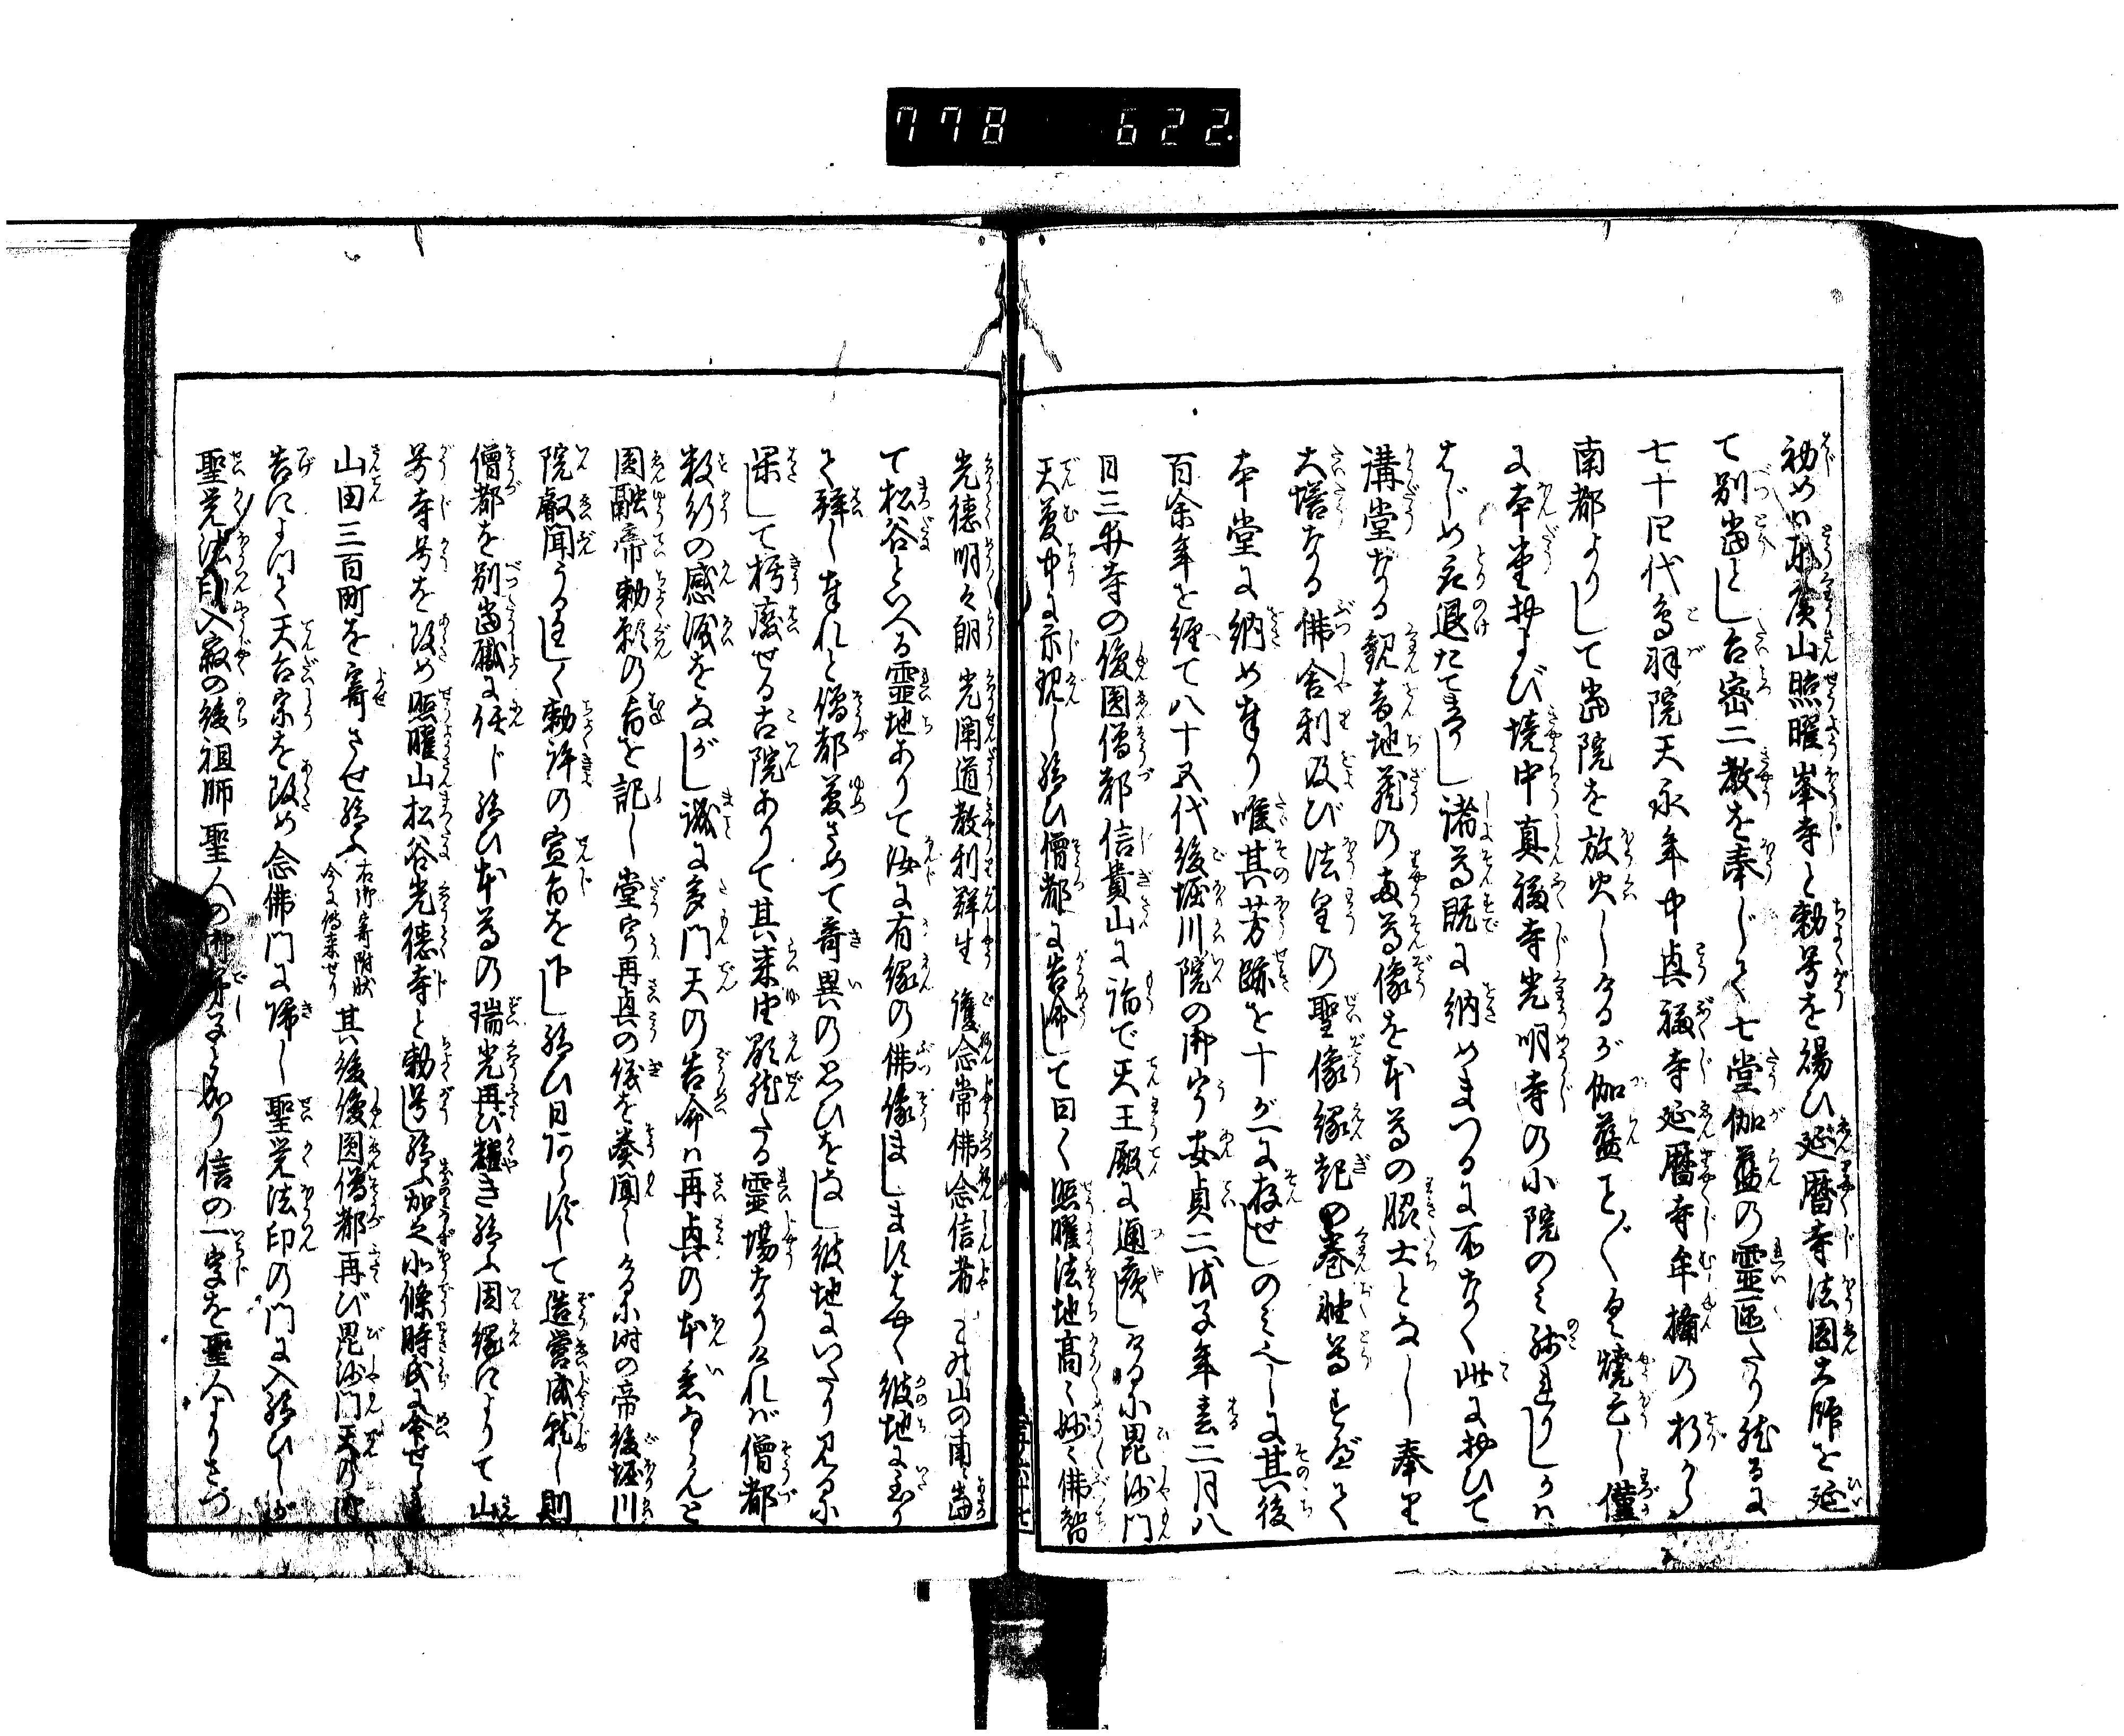 778 622
初めハ東廣山照曜峯寺と勅号を得ひ延暦寺法圓大師を延
て別當とし台密二教を奉じて七堂伽藍の霊區たり然るに
七十四代鳥羽院天永年中興福寺延暦寺牟楯の折から
南都よりして當院を放火しけるが伽藍こと〴〵く焼亡し僅
に本堂および境中真福寺光明寺の小院のミ残りしかハ
はじめ取退たてまつりし諸尊既に納めまつるに所なく此に於ひて
講堂なる観音地蔵の両尊像を本尊の脇士となし奉り
大塔なる佛舎利及び法皇の聖像縁起の巻軸等すべて
本堂に納め奉り唯其芳跡を十が一に存せしのミ也しに其後
百余年を經て八十五代後堀川院の御宇安貞二戊子年春二月八
日三井寺の俊圓僧都信貴山に詣で天王殿に通夜しけるに毘沙門
天夢中に示現し給ひ僧都に告命して曰く照曜法地高く妙々佛智
光徳明々朗 光闡道教利群生 護念常佛念信者 これ山の南に當
て松谷といへる霊地ありて汝に有縁の佛像ましますはやく彼地に至り
て拜し奉れと僧都夢さめて奇異の思ひをなし彼地にいたり見るに
果して朽廢せる古院ありて其来由顕然たる霊場なりけれバ僧都
数行の感涙をながし誠に多門天の告命ハ再興の本意ならんと
圓融帝勅願の旨を記し堂宇再興の儀を奏聞しけるに時の帝後堀川
院叡聞うるはしく勅許の宣旨を下し給ひ日あらずして造営成就し則
僧都を別當職に任じ給ひ本尊の瑞光再び耀き給ふ因縁によりて山
号寺号を改め照曜山松谷光徳寺と勅号し給ふ加之北條時氏に命せられ
山田三百町を寄させ給ふ右御寄附状今に傳来せり其後俊圓僧都再び毘沙門天の御
告によつて天台宗を改め念佛門に帰し聖覚法印の門に入給ひしが
聖覚法印入寂の後祖師聖人の御弟子となり信の一字を聖人よりさづ